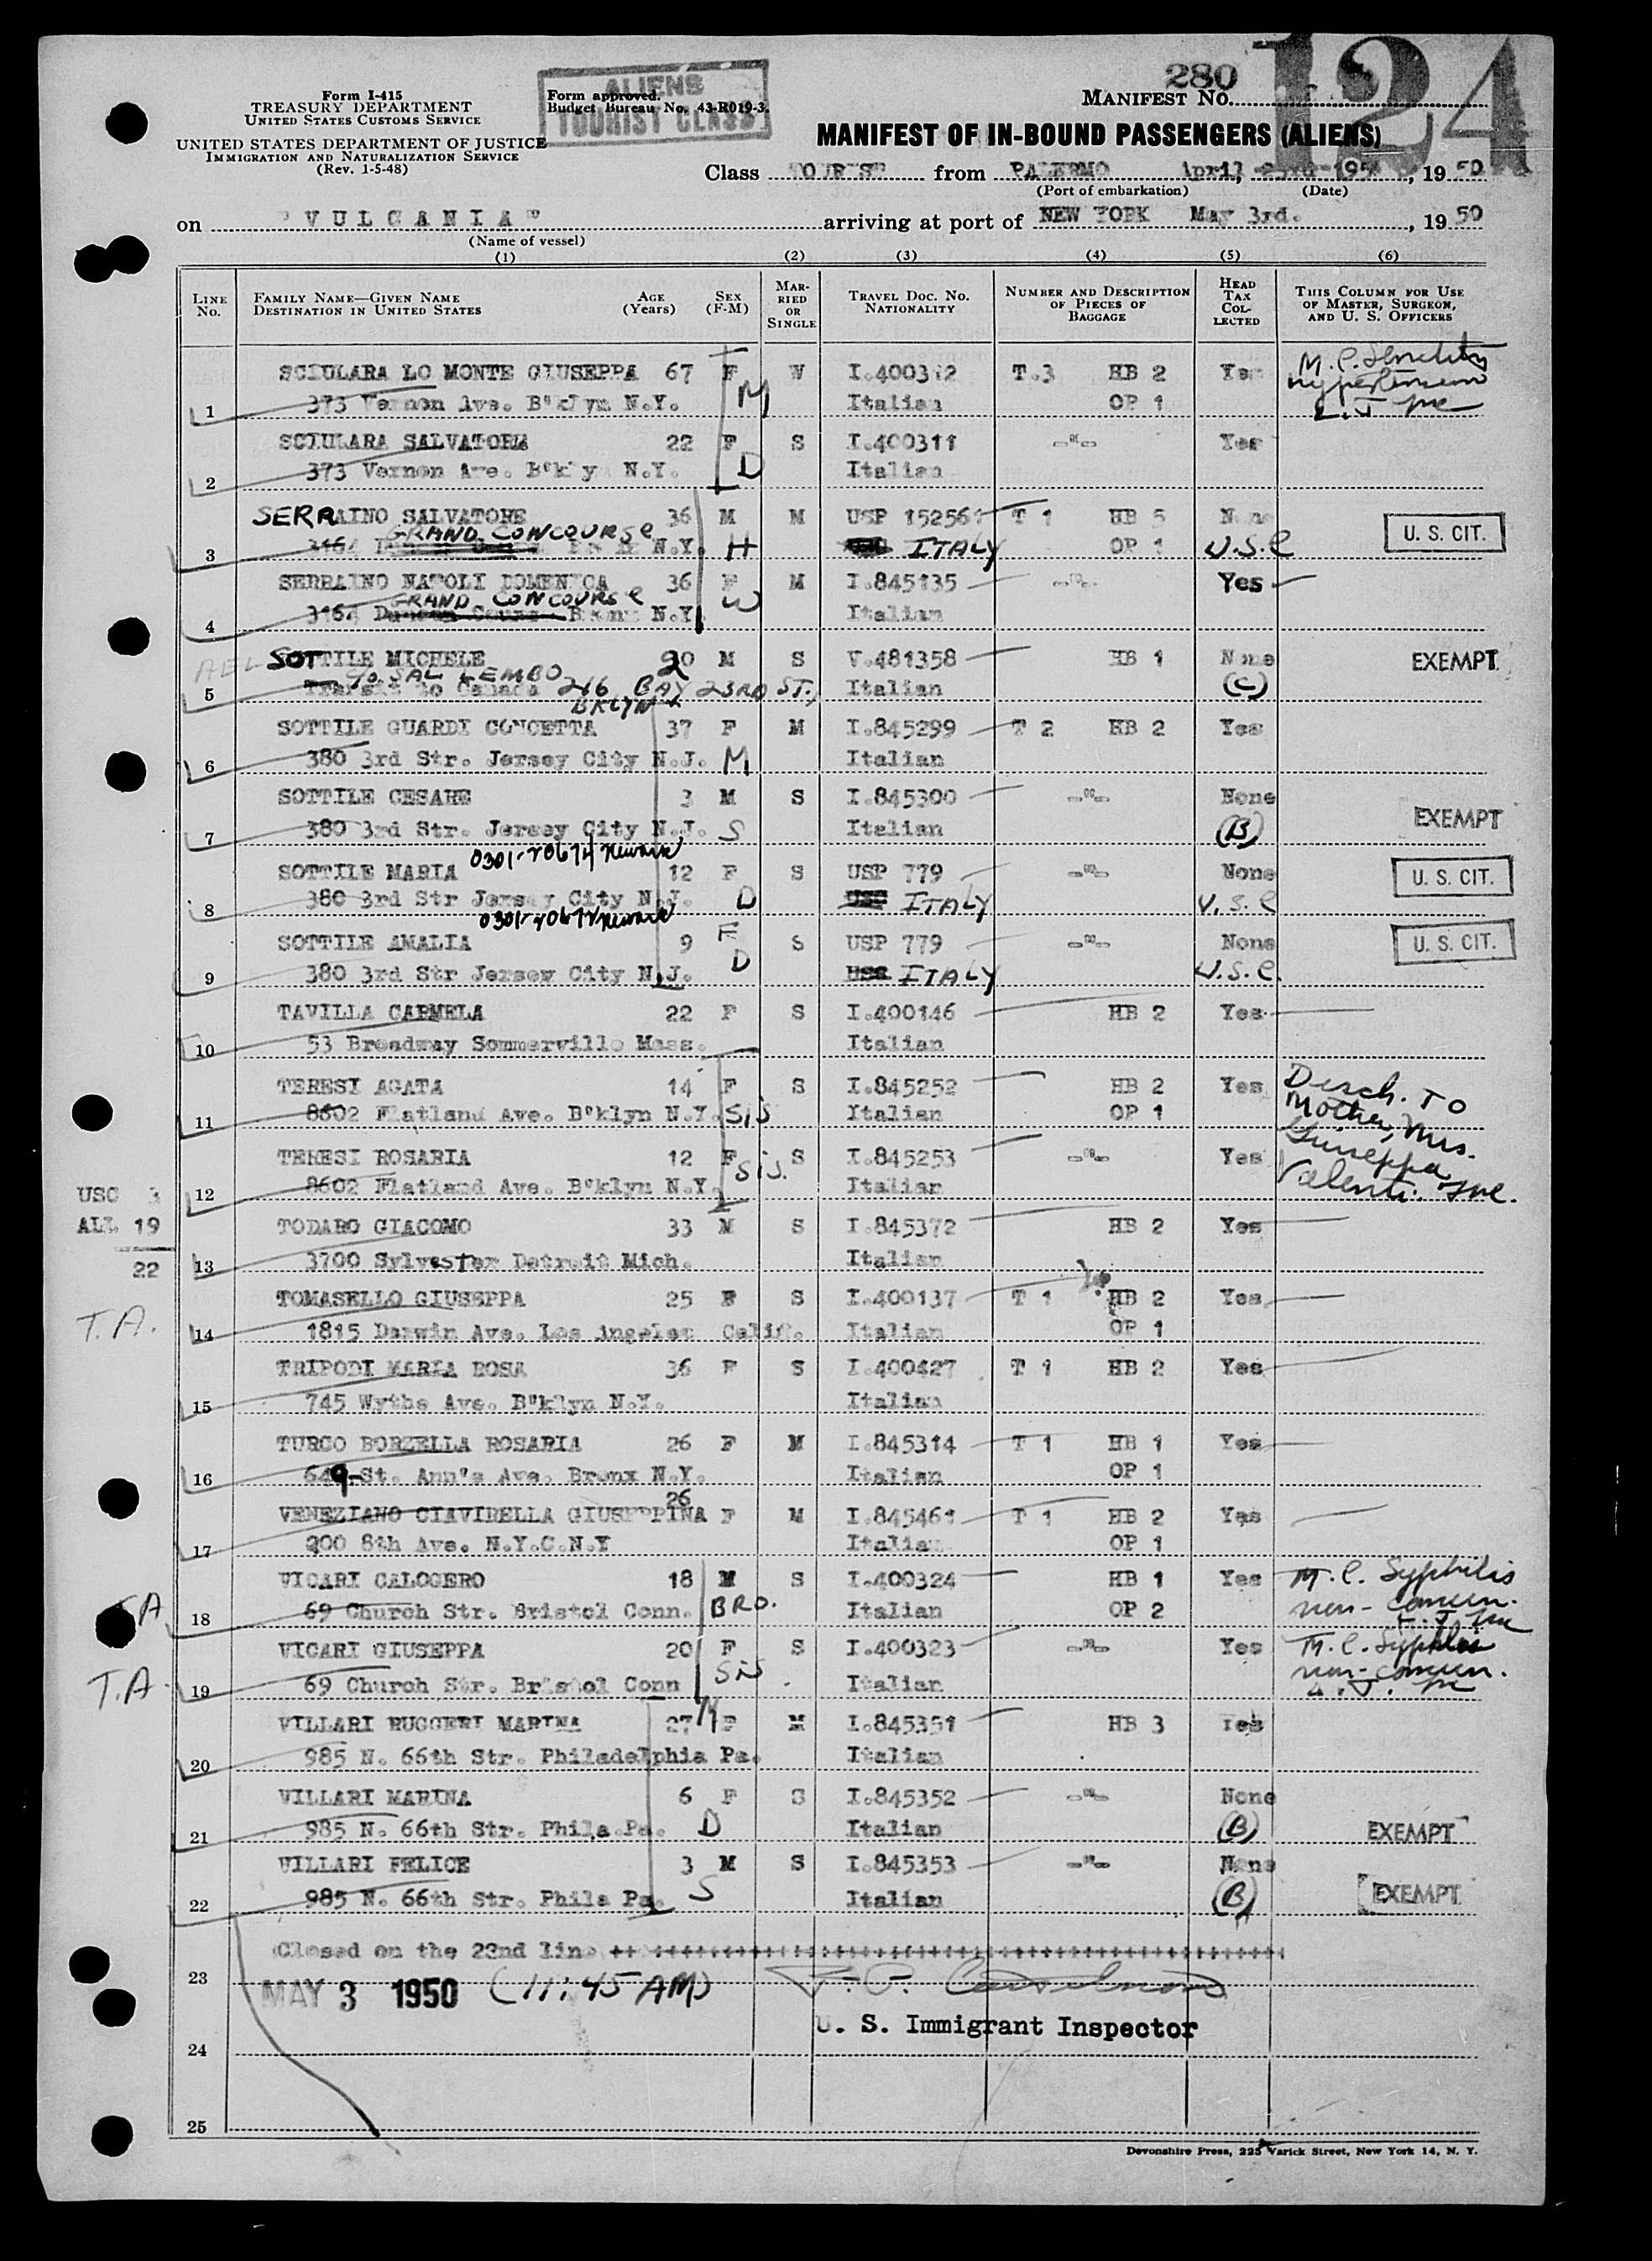 280
124
Form I-415
TREASURY DEPARTMENT
UNITED STATES CUSTOMS SERVICE
UNITED STATES DEPARTMENT OF JUSTICE
IMMIGRATION AND NATURALIZATION SERVICE
(Rev. 1-5-48)
Form approved.
Budget Bureau No. 43-R019-3.
ALIENS
TOURIST CLASS
MANIFEST NO.
MANIFEST OF IN-BOUND PASSENGERS (ALIENS)
Class TOURIST from PALERMO April, 1950
(Port of embarkation) (Date)
on "VULCANIA" arriving at port of NEW YORK May 3rd., 1950
(Name of vessel)
(1) (2) (3) (4) (5) (6)
LINE NO. FAMILY NAME—GIVEN NAME DESTINATION IN UNITED STATES AGE (Years) SEX (F-M) MARRIED OR SINGLE TRAVEL DOC. NO. NATIONALITY NUMBER AND DESCRIPTION OF PIECES OF BAGGAGE HEAD TAX COLLECTED THIS COLUMN FOR USE OF MASTER, SURGEON, AND U. S. OFFICERS
SCIULARA LO MONTE GIUSEPPA 67 F W I.400312 T.3 HB 2 Yes M.C. Senility
1 373 Vernon Ave. B'klyn N.Y. M Italian OP 1 hypertension
SCIULARA SALVATORA 22 F S I.400311 -"- Yes
2 373 Vernon Ave. B'kly N.Y. D Italian
SERRAINO SALVATORE 36 M M USP 152561 T 1 HB 5 None U. S. CIT.
3 3164 GRAND CONCOURSE N.Y. H ITALY OP 1 U.S.C
SERRAINO NAPOLI DOMENICA 36 F M I.845135 -"- Yes
4 3164 GRAND CONCOURSE Bronx N.Y. W Italian
SOTTILE MICHELE 20 M S V.481358 HB 1 None EXEMPT
c/o SAL LEMBO
5 Transit to Canada 216 BAY 23RD ST. Italian (C)
BKLYN
SOTTILE GUARDI CONCETTA 37 F M I.845299 T 2 HB 2 Yes
6 380 3rd Str. Jersey City N.J. M Italian
SOTTILE CESARE 3 M S I.845300 -"- None EXEMPT
7 380 3rd Str. Jersey City N.J. S Italian (B)
0301-20674 Newark
SOTTILE MARIA 12 F S USP 779 -"- None U. S. CIT.
8 380 3rd Str Jersey City N.J. D ITALY U.S.C
Newark
SOTTILE AMALIA 9 F S USP 779 -"- None U. S. CIT.
9 380 3rd Str Jersey City N.J. D ITALY U.S.C.
TAVILLA CARMELA 22 F S I.400146 HB 2 Yes
10 53 Broadway Sommerville Mass. Italian
TERESI AGATA 14 F S I.845252 HB 2 Yes Disch. TO
11 8602 Flatland Ave. B'klyn N.Y. Sis Italian OP 1 Mother, Mrs.
TERESI ROSARIA 12 F S I.845253 -"- Yes Giuseppa
12 8602 Flatland Ave. B'klyn N.Y. Sis. Italian Valenti.
USC 3
ALL 19
22
TODARO GIACOMO 33 M S I.845372 HB 2 Yes
13 3700 Sylvester Detroit Mich. Italian
TOMASELLO GIUSEPPA 25 F S I.400137 T 1 HB 2 Yes
T.A. 14 1815 Darwin Ave. Los Angeles Calif. Italian OP 1
TRIPODI MARIA ROSA 36 F S I.400427 T 1 HB 2 Yes
15 745 Wythe Ave. B'klyn N.Y. Italian
TURCO BORZELLA ROSARIA 26 F M I.845314 T 1 HB 1 Yes
16 649 St. Ann's Ave. Bronx N.Y. Italian OP 1
VENEZIANO CIAVIRELLA GIUSEPPINA 26 F M I.845461 T 1 HB 2 Yes
17 200 8th Ave. N.Y.C.N.Y Italian OP 1
VICARI CALOGERO 18 M S I.400324 HB 1 Yes M.C. Syphilis
TA 18 69 Church Str. Bristol Conn. BRO. Italian OP 2 non-commun.
VICARI GIUSEPPA 20 F S I.400323 -"- Yes M.C. Syphilis
T.A. 19 69 Church Str. Bristol Conn Sis Italian non-commun.
VILLARI RUGGERI MARINA 27 M F M I.845351 HB 3 Yes
20 985 N. 66th Str. Philadelphia Pa. Italian
VILLARI MARINA 6 F S I.845352 -"- None
21 985 N. 66th Str. Phila.Pa. D Italian (B) EXEMPT
VILLARI FELICE 3 M S I.845353 -"- None
22 985 N. 66th Str. Phila Pa. S Italian (B) EXEMPT
Closed on the 22nd line
23 MAY 3 1950 (11:45 AM)
U. S. Immigrant Inspector
24
25
Devonshire Press, 225 Varick Street, New York 14, N. Y.